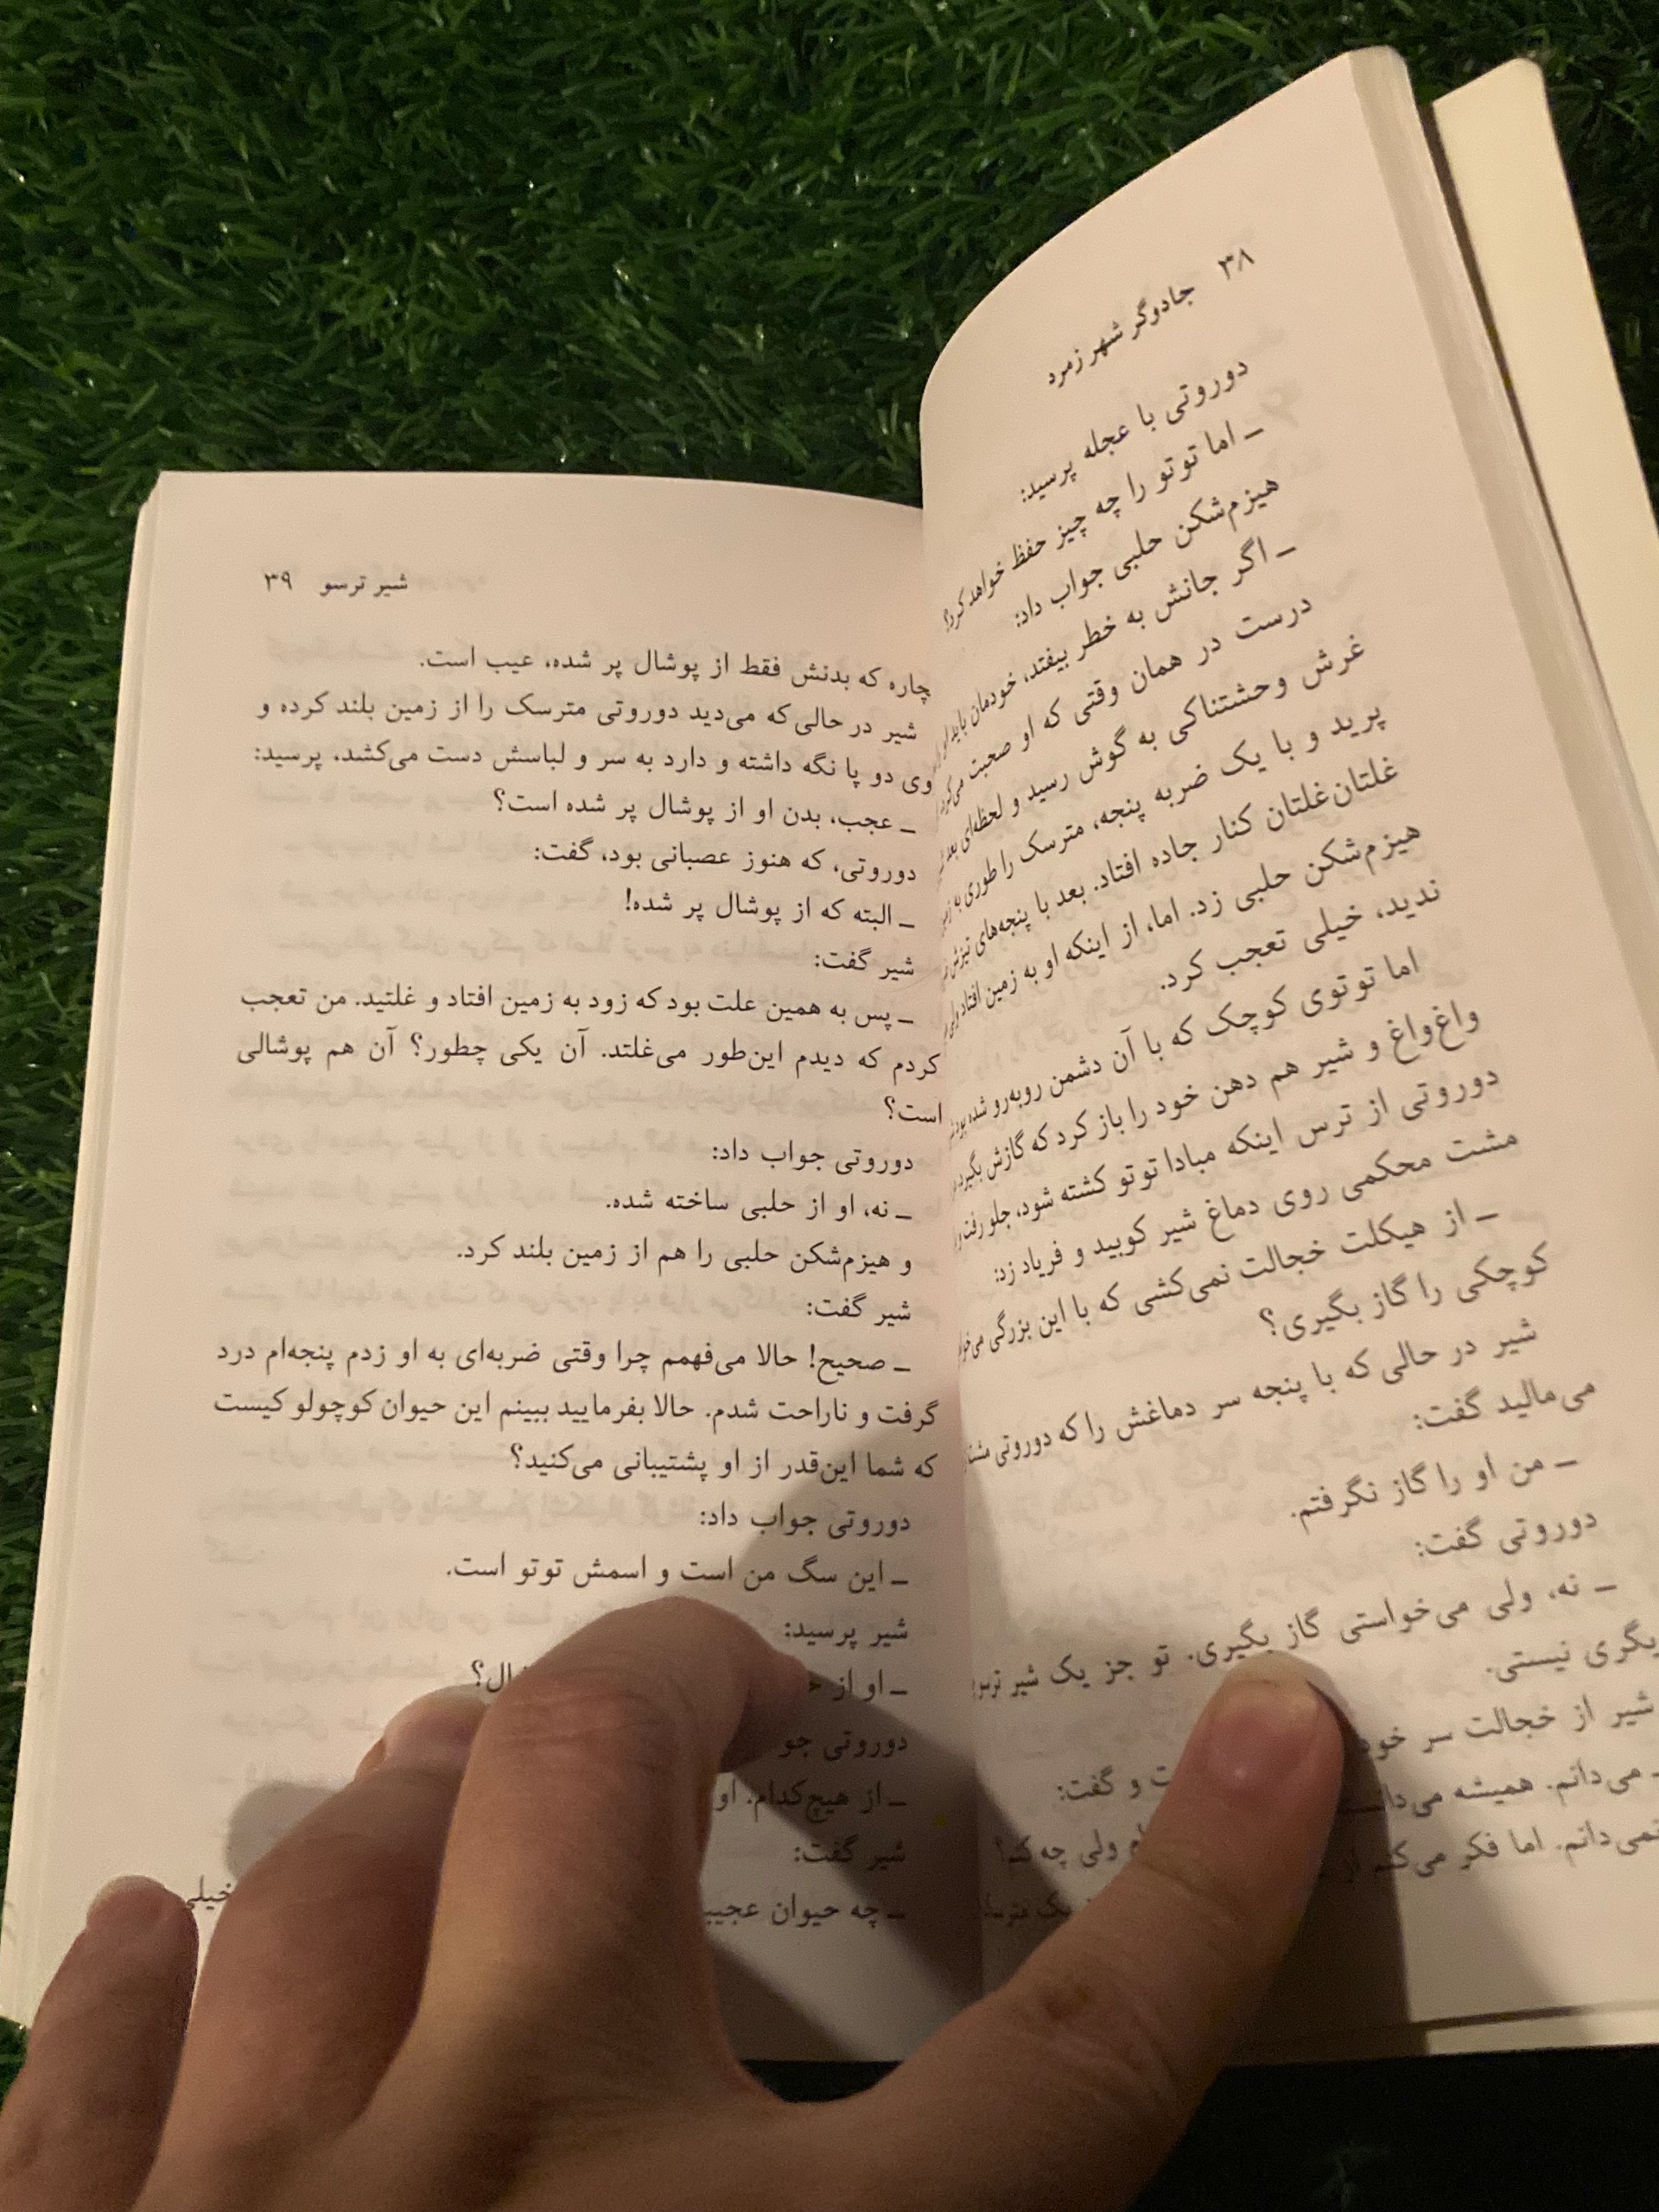 ۳۸ جادوگر شهر زمرد
دوروتی با عجله پرسید:
ـ اما توتو را چه چیز حفظ خواهد کرد؟
هیزم‌شکن حلبی جواب داد:
ـ اگر جانش به خطر بیفتد، خودمان باید او
درست در همان وقتی که او صحبت می‌کرد
غرش وحشتناکی به گوش رسید و لحظه‌ای بعد
پرید و با یک ضربه پنجه، مترسک را طوری به
غلتان‌غلتان کنار جاده افتاد. بعد با پنجه‌های تیزش
هیزم‌شکن حلبی زد. اما، از اینکه او به زمین افتاد ولی
ندید، خیلی تعجب کرد.
اما توتوی کوچک که با آن دشمن روبه‌رو شده بود
واغ‌واغ و شیر هم دهن خود را باز کرد که گازش بگیرد
دوروتی از ترس اینکه مبادا توتو کشته شود، جلو رفت
مشت محکمی روی دماغ شیر کوبید و فریاد زد:
ـ از هیکلت خجالت نمی‌کشی که با این بزرگی
کوچکی را گاز بگیری؟
شیر در حالی که با پنجه سر دماغش را که دوروتی
می‌مالید گفت:
ـ من او را گاز نگرفتم.
دوروتی گفت:
ـ نه، ولی می‌خواستی گاز بگیری. تو جز یک شیر ترسو
نیستی.
شیر از خجالت سر خود و گفت:
ـ می‌دانم. همیشه ولی چه کنم؟
نمی‌دانم. اما فکر می‌کنم از یک
۳۹ شیر ترسو
چاره که بدنش فقط از پوشال پر شده، عیب است.
شیر در حالی که می‌دید دوروتی مترسک را از زمین بلند کرده و
وی دو پا نگه داشته و دارد به سر و لباسش دست می‌کشد، پرسید:
ـ عجب، بدن او از پوشال پر شده است؟
دوروتی، که هنوز عصبانی بود، گفت:
ـ البته که از پوشال پر شده!
شیر گفت:
ـ پس به همین علت بود که زود به زمین افتاد و غلتید. من تعجب
کردم که دیدم این‌طور می‌غلتد. آن یکی چطور؟ آن هم پوشالی
است؟
دوروتی جواب داد:
ـ نه، او از حلبی ساخته شده.
و هیزم‌شکن حلبی را هم از زمین بلند کرد.
شیر گفت:
ـ صحیح! حالا می‌فهمم چرا وقتی ضربه‌ای به او زدم پنجه‌ام درد
گرفت و ناراحت شدم. حالا بفرمایید ببینم این حیوان کوچولو کیست
که شما این‌قدر از او پشتیبانی می‌کنید؟
دوروتی جواب داد:
ـ این سگ من است و اسمش توتو است.
شیر پرسید:
ـ او از
دوروتی
ـ از هیچ‌کدام. او
شیر گفت:
ـ چه حیوان خیلی